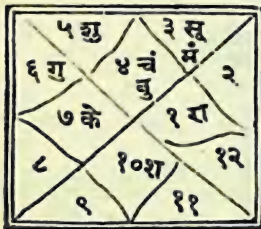 ५ शु ३ सू
४ चं मं
६ गु बु २
७ के १ रा
८ १० श १२
९ ११